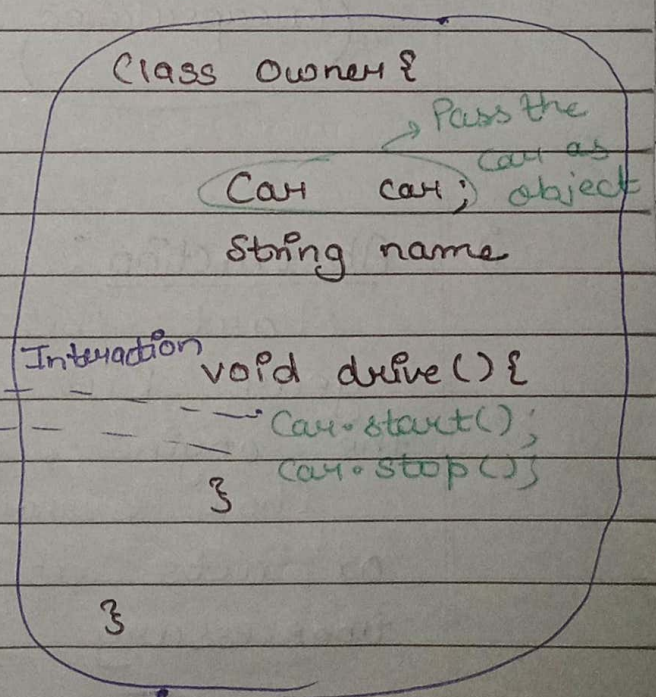 Class Owner {
Pass the
Car car; car as
object
String name
Interaction
void drive() {
Car.start();
Car.stop();
}
}